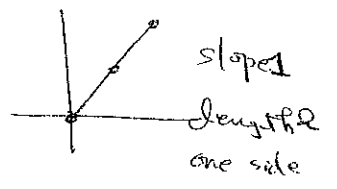 slope1
length2
one side